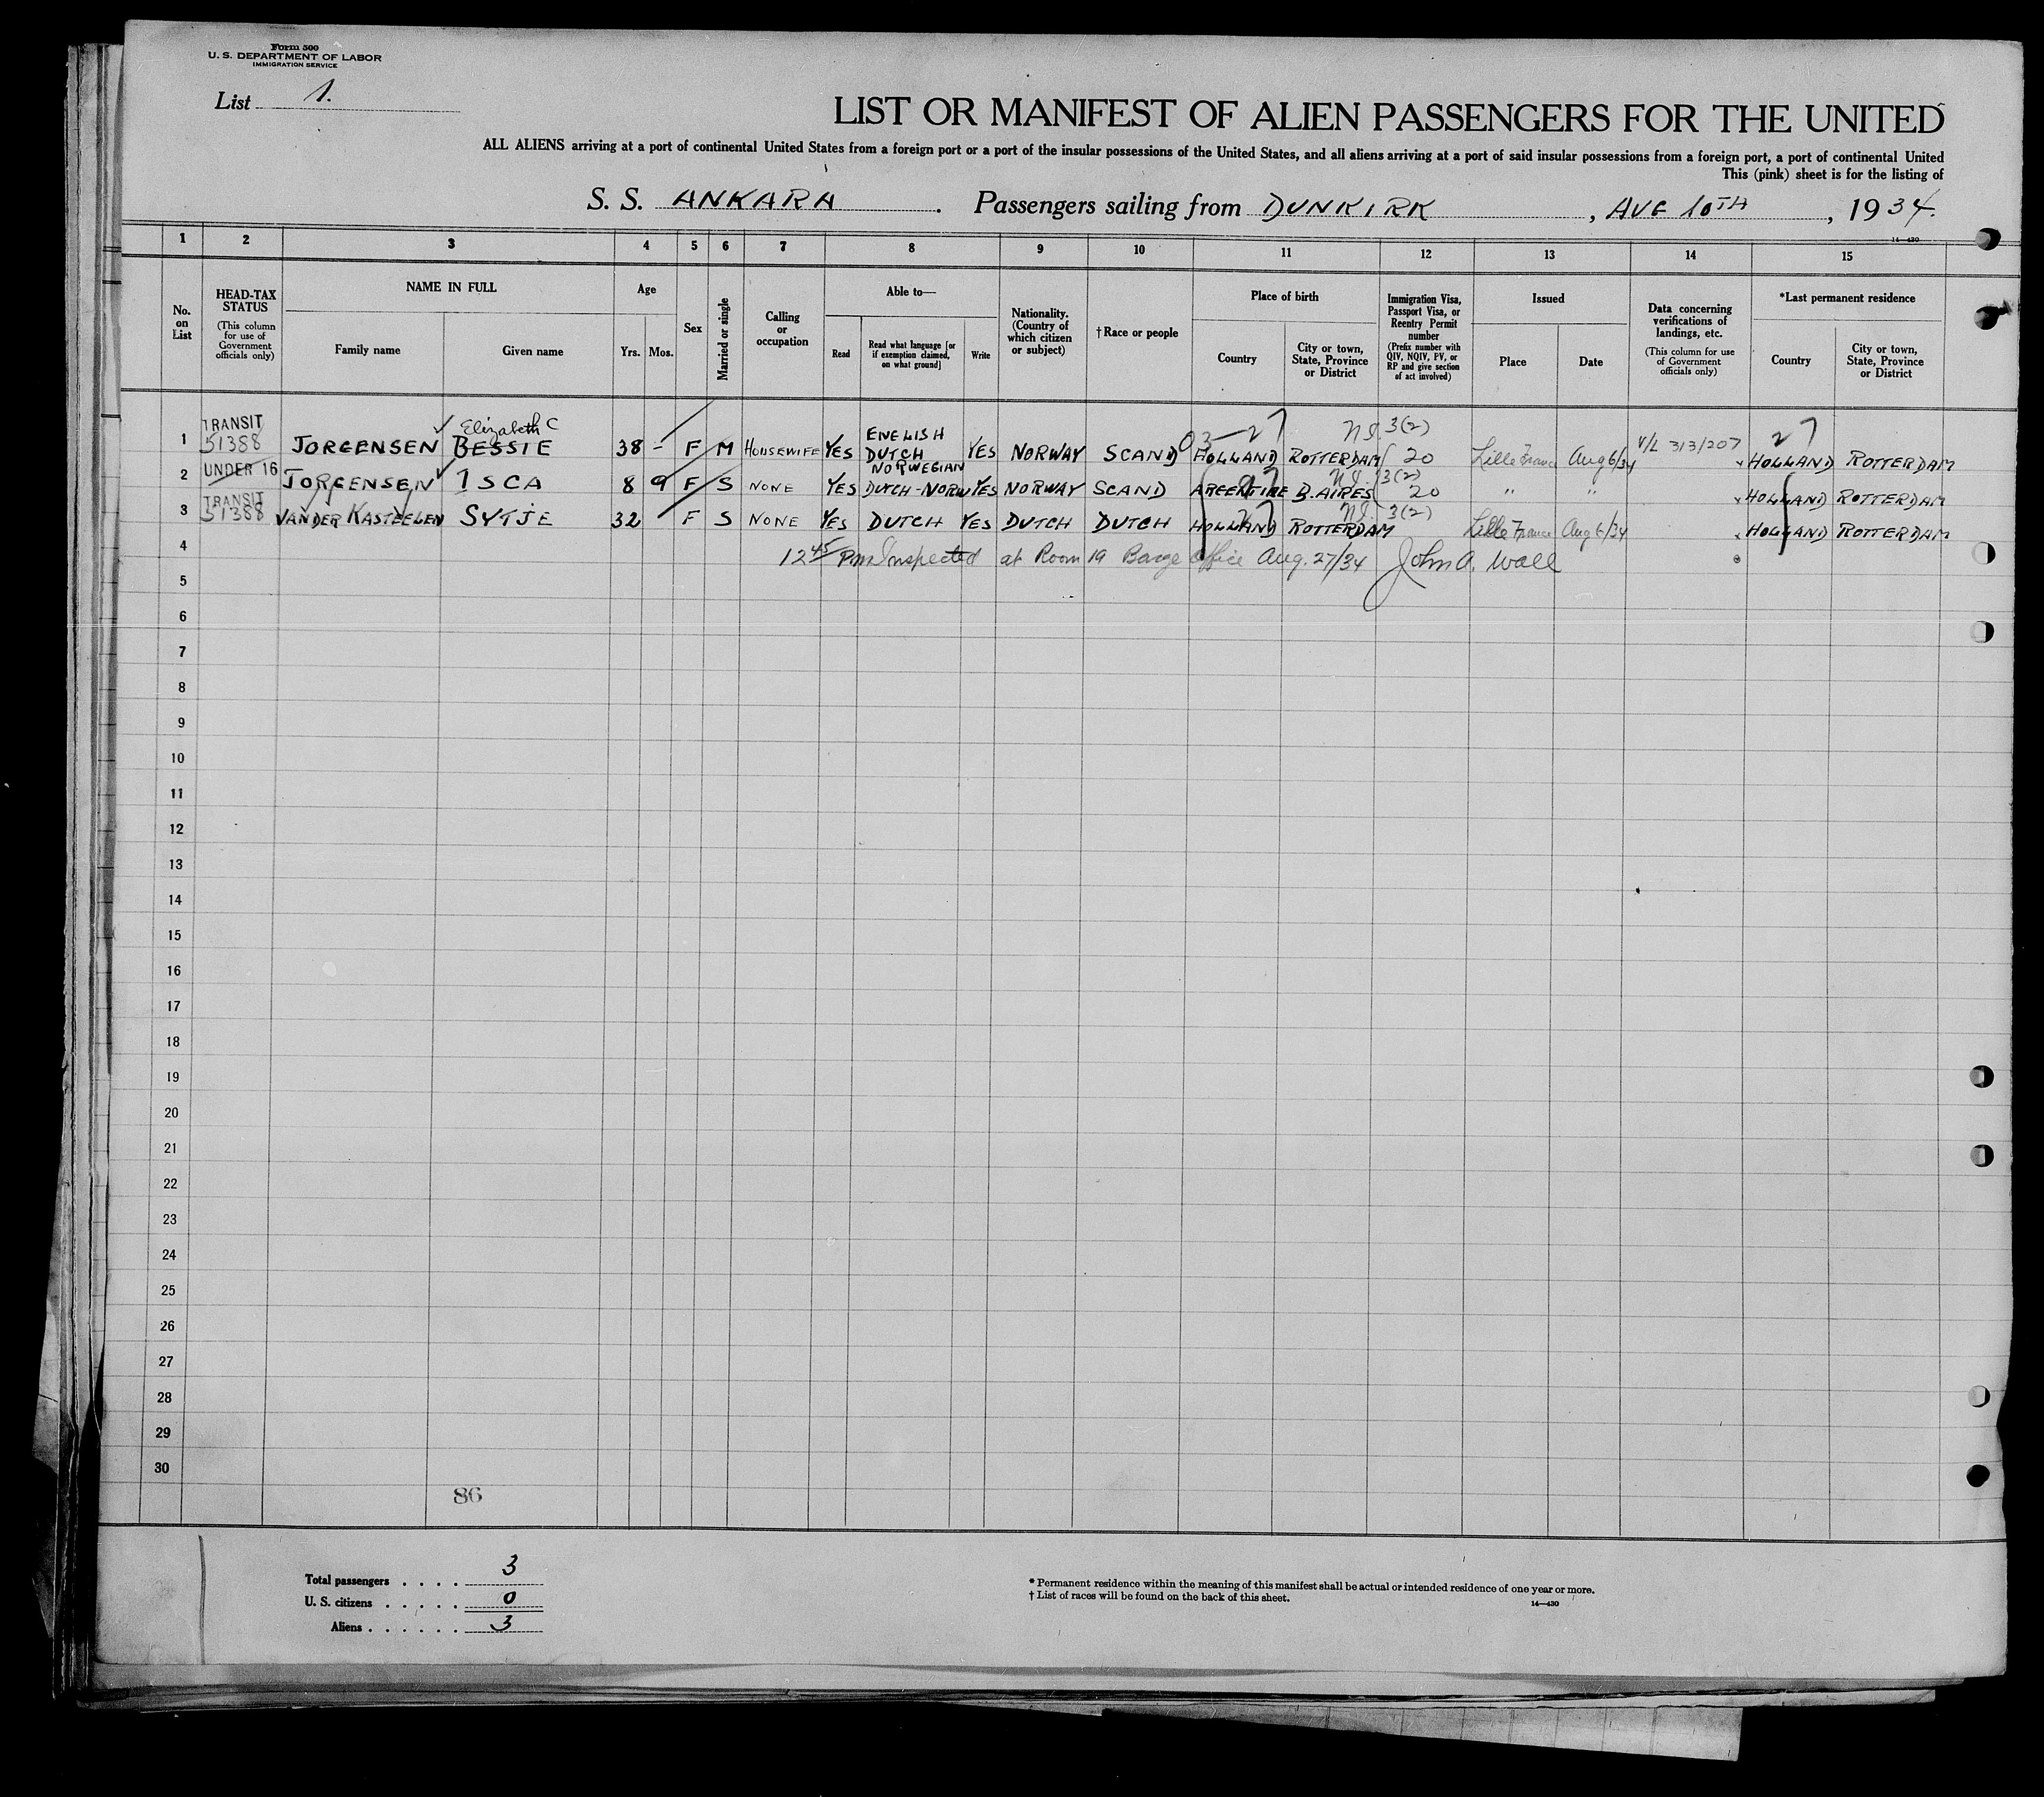 Form 500
U. S. DEPARTMENT OF LABOR
IMMIGRATION SERVICE
List 1.
LIST OR MANIFEST OF ALIEN PASSENGERS FOR THE UNITED
ALL ALIENS arriving at a port of continental United States from a foreign port or a port of the insular possessions of the United States, and all aliens arriving at a port of said insular possessions from a foreign port, a port of continental United
This (pink) sheet is for the listing of
S. S. ANKARA. Passengers sailing from DUNKIRK, AUG 10TH, 1934.
14—430
1 2 3 4 5 6 7 8 9 10 11 12 13 14 15
No. on List
HEAD-TAX STATUS (This column for use of Government officials only)
NAME IN FULL
Family name Given name
Age
Yrs. Mos.
Sex
Married or single
Calling or occupation
Able to—
Read
Read what language [or if exemption claimed, on what ground]
Write
Nationality. (Country of which citizen or subject)
†Race or people
Place of birth
Country
City or town, State, Province or District
Immigration Visa, Passport Visa, or Reentry Permit number (Prefix number with QIV, NQIV, PV, or RP and give section of act involved)
Issued
Place Date
Data concerning verifications of landings, etc. (This column for use of Government officials only)
*Last permanent residence
Country
City or town, State, Province or District
1 TRANSIT 51388 JORGENSEN Elizabeth C BESSIE 38 - F M HOUSEWIFE YES ENGLISH DUTCH NORWEGIAN YES NORWAY SCAND 03—27 HOLLAND ROTTERDAM 3(2) 20 Lille France Aug 6/34 V/L 313/207 27 HOLLAND ROTTERDAM
2 UNDER 16 JORGENSEN ISCA 8 9 F S NONE YES DUTCH-NORW YES NORWAY SCAND ARGENTINE B. AIRES 3(2) 20 " " HOLLAND ROTTERDAM
3 TRANSIT 51388 VANDER KASTEELEN SYTJE 32 F S NONE YES DUTCH YES DUTCH DUTCH HOLLAND ROTTERDAM 3(2) Lille France Aug 6/34 HOLLAND ROTTERDAM
4 12 45 Pm Inspected at Room 19 Barge Office Aug. 27/34 John A. Wall
5
6
7
8
9
10
11
12
13
14
15
16
17
18
19
20
21
22
23
24
25
26
27
28
29
30
86
Total passengers . . . . 3
U. S. citizens . . . . . 0
Aliens . . . . . . 3
* Permanent residence within the meaning of this manifest shall be actual or intended residence of one year or more.
† List of races will be found on the back of this sheet.
14—430